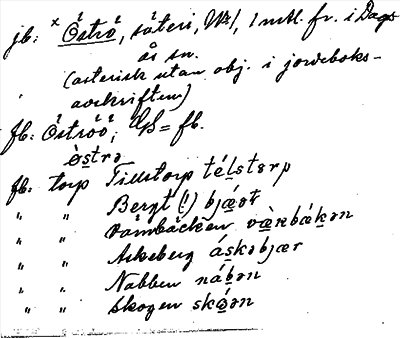 jb: × Öströ, säteri, Wl, 1 mtl. fr. i Dags
ås sn.
(asterisk utan obj. i jordeboks-
avskriften)
fb: Öströö, GS = fb.
östrə
fb. torp Tillstorp télstɔrp
" " Bergt (!) bjǽrt
" " Vämbäcken væ̀mbákən
" " Askeberg áskəbjær
" " Nabben nábən
" " Skogen skógən